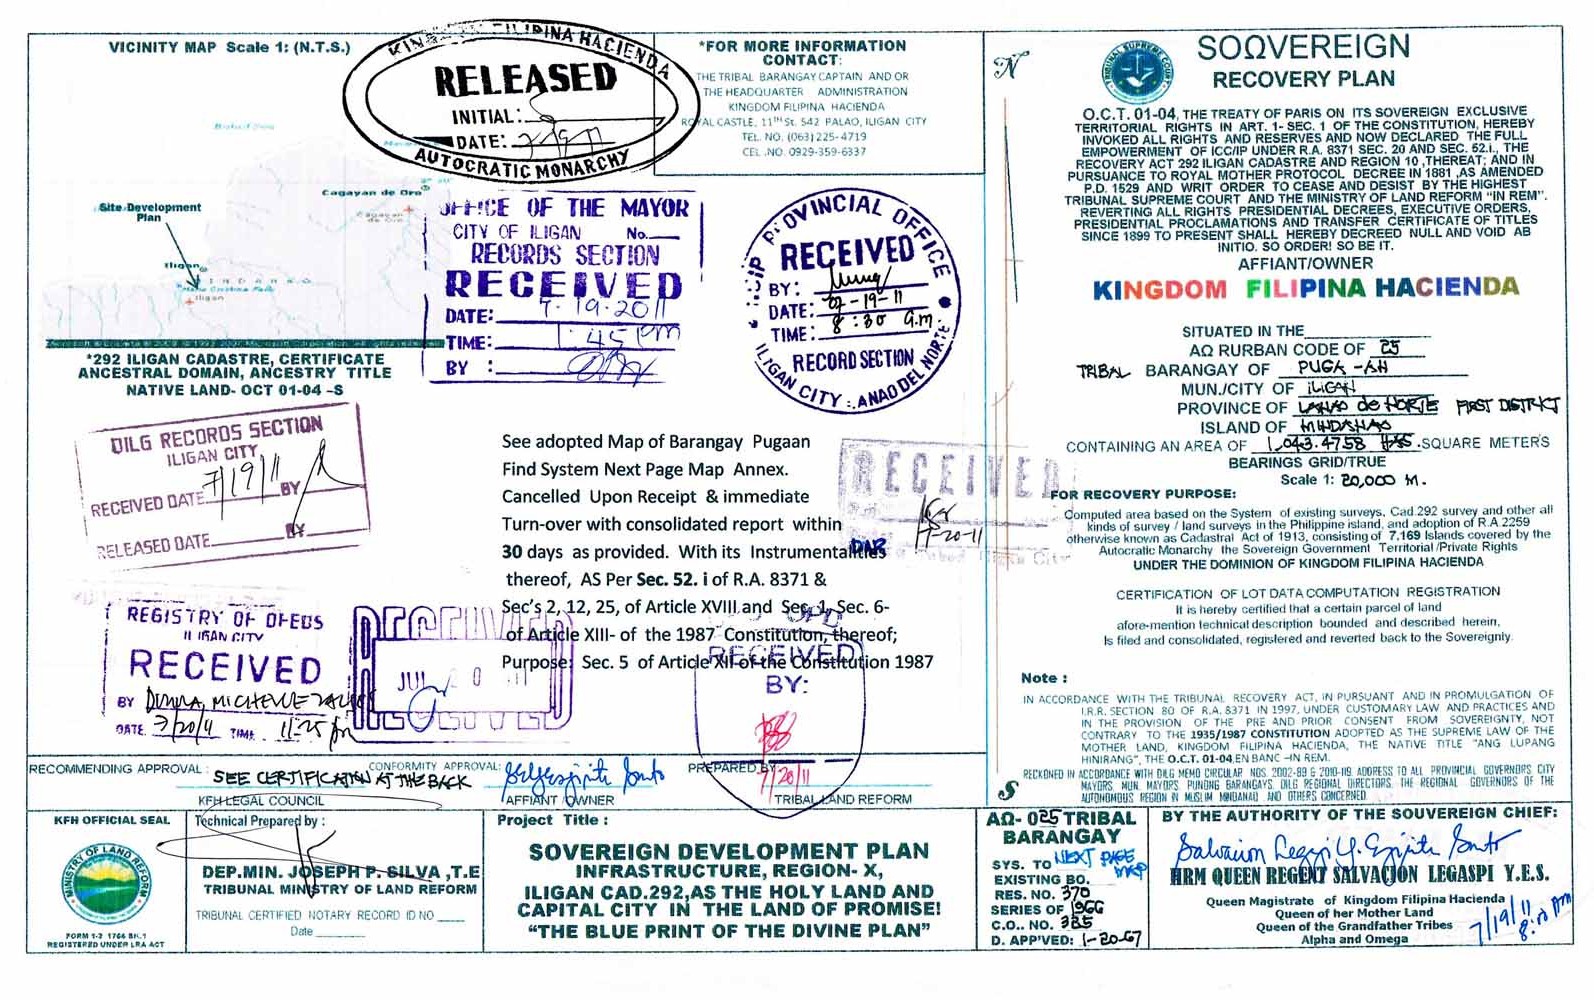 VICINITY MAP Scale 1: (N.T.S.)
Cagayan de Oro
Cagayan de Oro
Site Development
Plan
Iligan
MINDANAO
Maria Cristina Falls
Iligan
*292 ILIGAN CADASTRE, CERTIFICATE
ANCESTRAL DOMAIN, ANCESTRY TITLE
NATIVE LAND- OCT 01-04 -S
KINGDOM FILIPINA HACIENDA
RELEASED
INITIAL:
DATE: 7/19/11
AUTOCRATIC MONARCHY
*FOR MORE INFORMATION
CONTACT:
THE TRIBAL BARANGAY CAPTAIN AND OR
THE HEADQUARTER ADMINISTRATION
KINGDOM FILIPINA HACIENDA
ROYAL CASTLE, 11TH St. 542 PALAO, ILIGAN CITY
TEL. NO. (063) 225-4719
CEL .NO. 0929-359-6337
OFFICE OF THE MAYOR
CITY OF ILIGAN No.
RECORDS SECTION
RECEIVED
DATE: 7-19-2011
TIME: 1:45 PM
BY :
NCIP PROVINCIAL OFFICE
RECEIVED
BY:
DATE: 07-19-11
TIME: 8:30 a.m
RECORD SECTION
ILIGAN CITY LANAO DEL NORTE
DILG RECORDS SECTION
ILIGAN CITY
RECEIVED DATE 7/19/11 BY
RELEASED DATE BY
See adopted Map of Barangay Pugaan
Find System Next Page Map Annex.
Cancelled Upon Receipt & immediate
Turn-over with consolidated report within
30 days as provided. With its Instrumentalities
thereof, AS Per Sec. 52. i of R.A. 8371 &
Sec's 2, 12, 25, of Article XVIII and Sec. 1, Sec. 6-
of Article XIII- of the 1987 Constitution, thereof;
Purpose: Sec. 5 of Article XII of the Constitution 1987
RECEIVED
7-20-11
DAR
Iligan City
REGISTRY OF DEEDS
ILIGAN CITY
RECEIVED
BY
DATE 7/20/11 TIME 11:25
RECEIVED
JUL 20 2011
CPD
RECEIVED
BY:
7/20/11
RECOMMENDING APPROVAL:
SEE CERTIFICATION AT THE BACK
KFH LEGAL COUNCIL
CONFORMITY APPROVAL:
AFFIANT /OWNER
PREPARED BY
TRIBAL LAND REFORM
KFH OFFICIAL SEAL
MINISTRY OF LAND REFORM
FORM 1-2 1764 BK.1
REGISTERED UNDER LRA ACT
Technical Prepared by :
DEP.MIN. JOSEPH P. SILVA ,T.E
TRIBAL MINISTRY OF LAND REFORM
TRIBAL CERTIFIED NOTARY RECORD ID NO
Date
Project Title :
SOVEREIGN DEVELOPMENT PLAN
INFRASTRUCTURE, REGION- X,
ILIGAN CAD.292,AS THE HOLY LAND AND
CAPITAL CITY IN THE LAND OF PROMISE!
"THE BLUE PRINT OF THE DIVINE PLAN"
N
S
TRIBAL SUPREME COURT
SOΩVEREIGN
RECOVERY PLAN
O.C.T. 01-04, THE TREATY OF PARIS ON ITS SOVEREIGN EXCLUSIVE
TERRITORIAL RIGHTS IN ART. 1- SEC. 1 OF THE CONSTITUTION, HEREBY
INVOKED ALL RIGHTS AND RESERVES AND NOW DECLARED THE FULL
EMPOWERMENT OF ICC/IP UNDER R.A. 8371 SEC. 20 AND SEC. 52.I., THE
RECOVERY ACT 292 ILIGAN CADASTRE AND REGION 10 ,THEREAT; AND IN
PURSUANCE TO ROYAL MOTHER PROTOCOL DECREE IN 1881 ,AS AMENDED
P.D. 1529 AND WRIT ORDER TO CEASE AND DESIST BY THE HIGHEST
TRIBUNAL SUPREME COURT AND THE MINISTRY OF LAND REFORM "IN REM".
REVERTING ALL RIGHTS PRESIDENTIAL DECREES, EXECUTIVE ORDERS,
PRESIDENTIAL PROCLAMATIONS AND TRANSFER CERTIFICATE OF TITLES
SINCE 1899 TO PRESENT SHALL HEREBY DECREED NULL AND VOID AB
INITIO. SO ORDER! SO BE IT.
AFFIANT/OWNER
KINGDOM FILIPINA HACIENDA
SITUATED IN THE
AΩ RURBAN CODE OF 25
TRIBAL BARANGAY OF PUGA-AN
MUN./CITY OF ILIGAN
PROVINCE OF LANAO del NORTE FIRST DISTRICT
ISLAND OF MINDANAO
CONTAINING AN AREA OF 1,043.4758 HAS. SQUARE METERS
BEARINGS GRID/TRUE
Scale 1: 20,000 M.
FOR RECOVERY PURPOSE:
Computed area based on the System of existing surveys, Cad.292 survey and other all
kinds of survey / land surveys in the Philippine island, and adoption of R.A.2259
otherwise known as Cadastral Act of 1913, consisting of 7,169 Islands covered by the
Autocratic Monarchy the Sovereign Government Territorial/Private Rights
UNDER THE DOMINION OF KINGDOM FILIPINA HACIENDA
CERTIFICATION OF LOT DATA COMPUTATION REGISTRATION
It is hereby certified that a certain parcel of land
afore-mention technical description bounded and described herein,
Is filed and consolidated, registered and reverted back to the Sovereignty.
Note :
IN ACCORDANCE WITH THE TRIBAL RECOVERY ACT, IN PURSUANT AND IN PROMULGATION OF
I.R.R. SECTION 80 OF R.A. 8371 IN 1997, UNDER CUSTOMARY LAW AND PRACTICES AND
IN THE PROVISION OF THE PRE AND PRIOR CONSENT FROM SOVEREIGNTY, NOT
CONTRARY TO THE 1935/1987 CONSTITUTION ADOPTED AS THE SUPREME LAW OF THE
MOTHER LAND, KINGDOM FILIPINA HACIENDA, THE NATIVE TITLE "ANG LUPANG
HINIRANG", THE O.C.T. 01-04,EN BANC -IN REM.
RECKONED IN ACCORDANCE WITH DILG MEMO CIRCULAR NOS. 2002-89 & 2010-119, ADDRESS TO ALL PROVINCIAL GOVERNORS CITY
MAYORS MUN. MAYORS, PUNONG BARANGAYS, DILG REGIONAL DIRECTORS, THE REGIONAL GOVERNORS OF THE
AUTONOMOUS REGION IN MUSLIM MINDANAO AND OTHERS CONCERNED.
AΩ- 025 TRIBAL
BARANGAY
SYS. TO NEXT PAGE MAP
EXISTING BO.
RES. NO. 370
SERIES OF 1966
C.O.. NO. 325
D. APP'VED: 1-20-67
BY THE AUTHORITY OF THE SOUVEREIGN CHIEF:
HRM QUEEN REGENT SALVACION LEGASPI Y.E.S.
Queen Magistrate of Kingdom Filipina Hacienda
Queen of her Mother Land
Queen of the Grandfather Tribes
Alpha and Omega
7/19/11